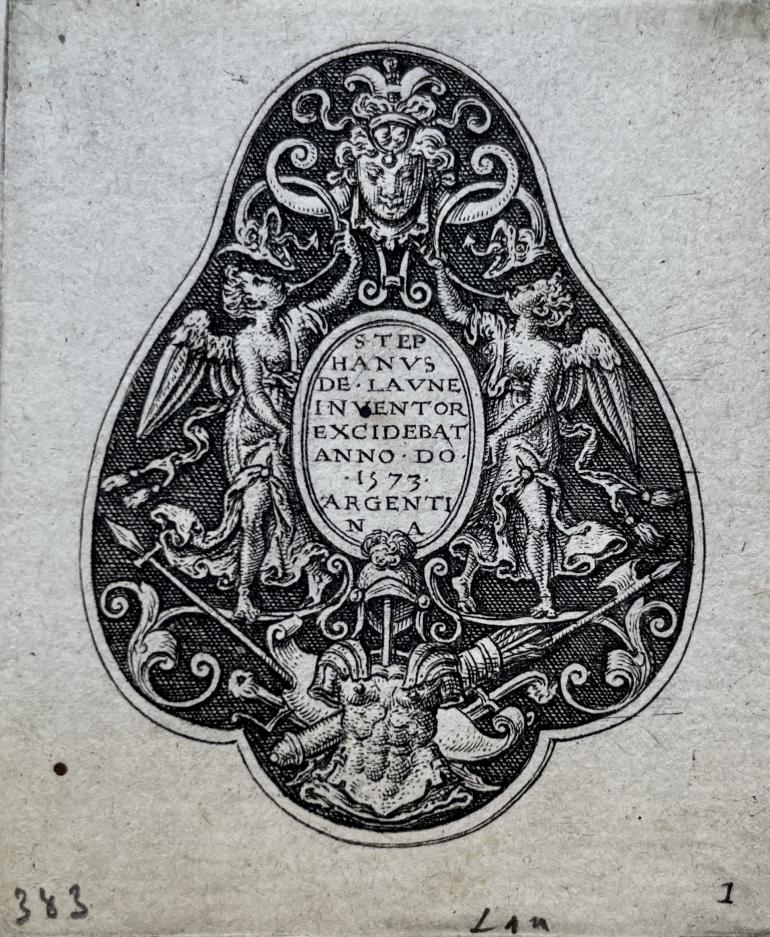 STEP
HANVS
DE · LAVNE
INVENTOR
EXCIDEBAT
ANNO · DO ·
· 1573 ·
ARGENTI
N A
383
1